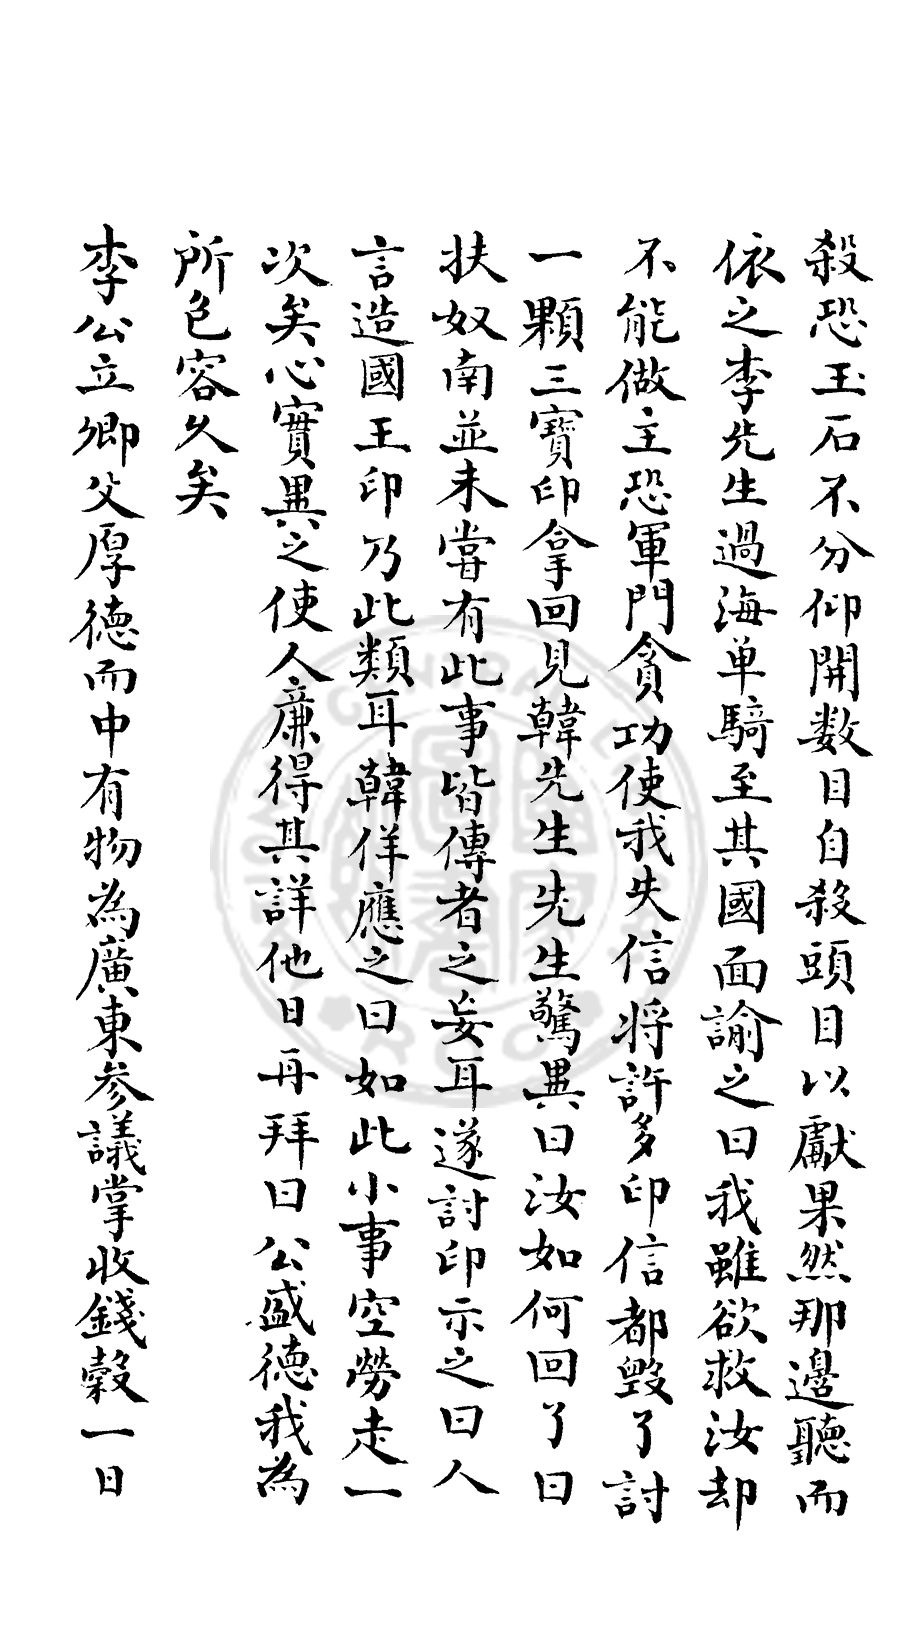 殺恐玉石不分仰開数目自殺頭目以獻果然那邊聽而
依之李先生過海单騎至其國面諭之曰我雖欲救汝却
不能做主恐軍門貪功使我失信将許多印信都毀了討
一顆三寳印拿回見韓先生先生驚異曰汝如何回了曰
扶奴南並未嘗有此事皆傳者之妄耳遂討印示之曰人
言造國王印乃此類耳韓佯應之曰如此小事空勞走一
次矣心實異之使人廉得其詳他日再拜曰公盛德我為
所包容久矣
李公立卿父厚德而中有物為廣東参議掌收錢穀一日